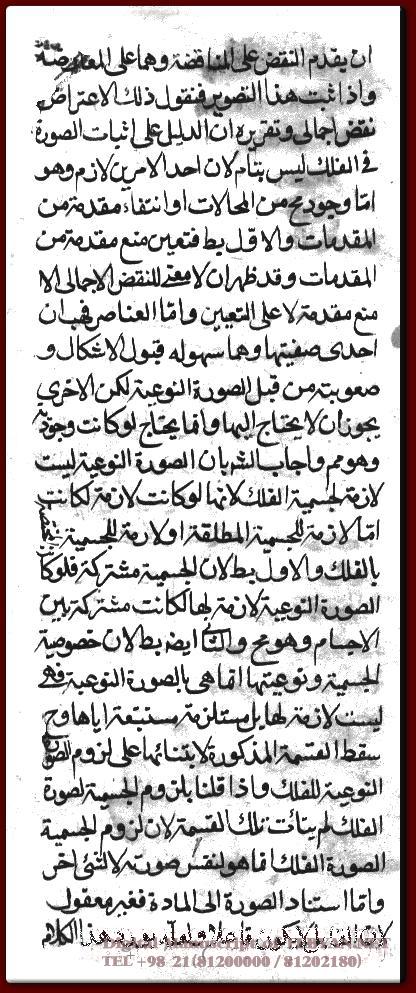 ان يقدم النقض على المناقضة وهما على المعارضة
واذا ثبت هذا التصوير فنقول ذلك الاعتراض
نقض اجمالى وتقريره ان الدليل على اثبات الصورة
فى الفلك ليس بتام لان احد الامرين لازم وهو
اما وجود مح من المحالات او انتفاء مقدمة من
المقدمات والاول بط فتعين منع مقدمة من
المقدمات وقد ظهر ان لا معنى للنقض الاجمالى الا
منع مقدمة لا على التعيين واما العناصر فهب ان
احدى صفيتها وهما سهوله قبول الاشكال و
صعوبته من قبل الصورة النوعية لكن الاخرى
يجوز ان لا يحتاج اليها وانما يحتاج لو كانت وجودية
وهو مم واجاب الش بان الصورة النوعية ليست
لازمة لجسمية الفلك لانها لو كانت لازمة لكانت
اما لازمة للجسمية المطلقة او لازمة للجسمية
بالفلك والاول بط لان الجسمية مشتركة فلو كا
الصورة النوعية لازمة لها لكانت مشتركة بين
الاجسام وهو مح والثانى ايضا بط لان خصوصية
الجسمية ونوعيتها انما هى بالصورة النوعية فهى
ليست لازمة لها بل مستلزمة مستتبعة اياها وح
سقط القسمة المذكورة لابتنائها على لزوم الصورة
النوعية للفلك واذا قلنا بلزوم الجسمية لصورة
الفلك لم يتأت تلك القسمة لان لزوم الجسمية
لصورة الفلك انما هو لنفس صورته لا لشئ اخر
واما استناد الصورة الى المادة فغير معقول
لان القابل لا يكون فاعلا هذا الكلام
TEL +98 21(81200000 / 81202180)